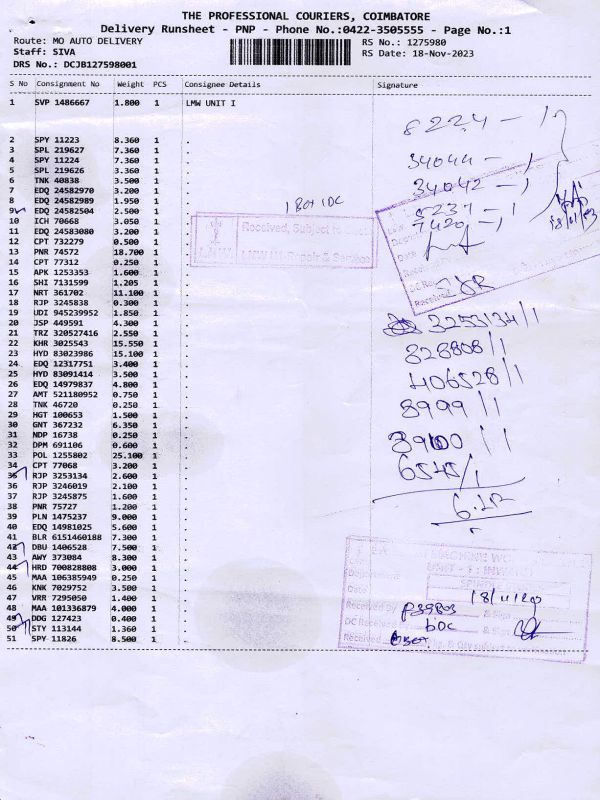 THE PROFESSIONAL COURIERS, COIMBATORE
Delivery Runsheet - PNP - Phone No.:0422-3505555 - Page No.:1
Route: MO AUTO DELIVERY
RS No.: 1275980
Staff: SIVA
RS Date: 18-Nov-2023
DRS No.: DCJB127598001
S No Consignment No Weight PCS Consignee Details Signature
1 SVP 1486667 1.800 1 LMW UNIT I
8224 - 1
2 SPY 11223 8.360 1 .
3 SPL 219627 7.360 1 .
34044 - 1
4 SPY 11224 7.360 1 .
5 SPL 219626 3.360 1 .
34042 - 1
6 TNK 40838 3.500 1 .
7 EDQ 24582970 3.200 1 .
8 EDQ 24582989 1.950 1 .
1 Box 1 DC
8237 - 1
9 EDQ 24582504 2.500 1 .
10 ICH 70668 3.050 1 .
7420 - 1
18/11/23
11 EDQ 24583080 3.200 1 .
Received, Subject to
12 CPT 732279 0.500 1 .
13 PNR 74572 18.700 1 .
L.M.W.
LMW U1 Repair & Service
14 CPT 77312 0.250 1 .
15 APK 1253353 1.600 1 .
16 SHI 7131599 1.205 1 .
17 NRT 361702 11.100 1 .
18 RJP 3245838 0.300 1 .
19 UDI 945239952 1.850 1 .
20 JSP 449591 4.300 1 .
3253134/1
21 TRZ 320527416 2.550 1 .
22 KHR 3025543 15.550 1 .
828808/1
23 HYD 83023986 15.100 1 .
24 EDQ 12317751 3.400 1 .
25 HYD 83091414 3.500 1 .
406528/1
26 EDQ 14979837 4.800 1 .
27 AMT 521180952 0.750 1 .
28 TNK 46720 0.250 1 .
8999/1
29 HGT 100653 1.500 1 .
30 GNT 367232 6.350 1 .
31 NDP 16738 0.250 1 .
39100/1
32 DPM 691106 0.600 1 .
33 POL 1255802 25.100 1 .
34 CPT 77068 3.200 1 .
6545/1
35 RJP 3253134 2.600 1 .
36 RJP 3246019 2.100 1 .
37 RJP 3245875 1.600 1 .
38 PNR 75727 1.200 1 .
39 PLN 1475237 9.000 1 .
40 EDQ 14981025 5.600 1 .
41 BLR 6151460188 7.300 1 .
42 DBU 1406528 7.500 1 .
43 AWY 373084 8.300 1 .
44 HRD 700828808 3.000 1 .
45 MAA 106385949 0.250 1 .
46 KNK 7029752 3.500 1 .
47 VRR 7295050 1.400 1 .
18/11/20
48 MAA 101336879 4.000 1 .
Received By
49 DDG 127423 0.400 1 .
DC Received 6DC
50 STY 113144 1.360 1 .
Received
51 SPY 11826 8.500 1 .